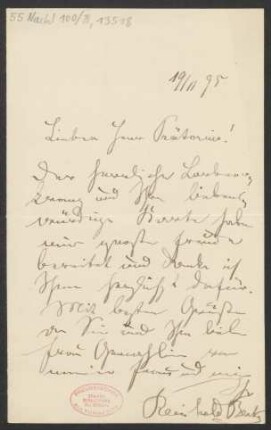 55 Nachl 100/B, 13518
19/11 95
Lieber Herr Prätorius!
Der herrliche Lorbeer-
kranz und Ihre liebens-
würdige Karte haben
mir große Freude
bereitet und danke ich
Ihnen herzlichst dafür.
Mit besten Grüßen
an Sie und Ihre
Frau Gemahlin von
meiner Frau und
Ihr
Reinhold